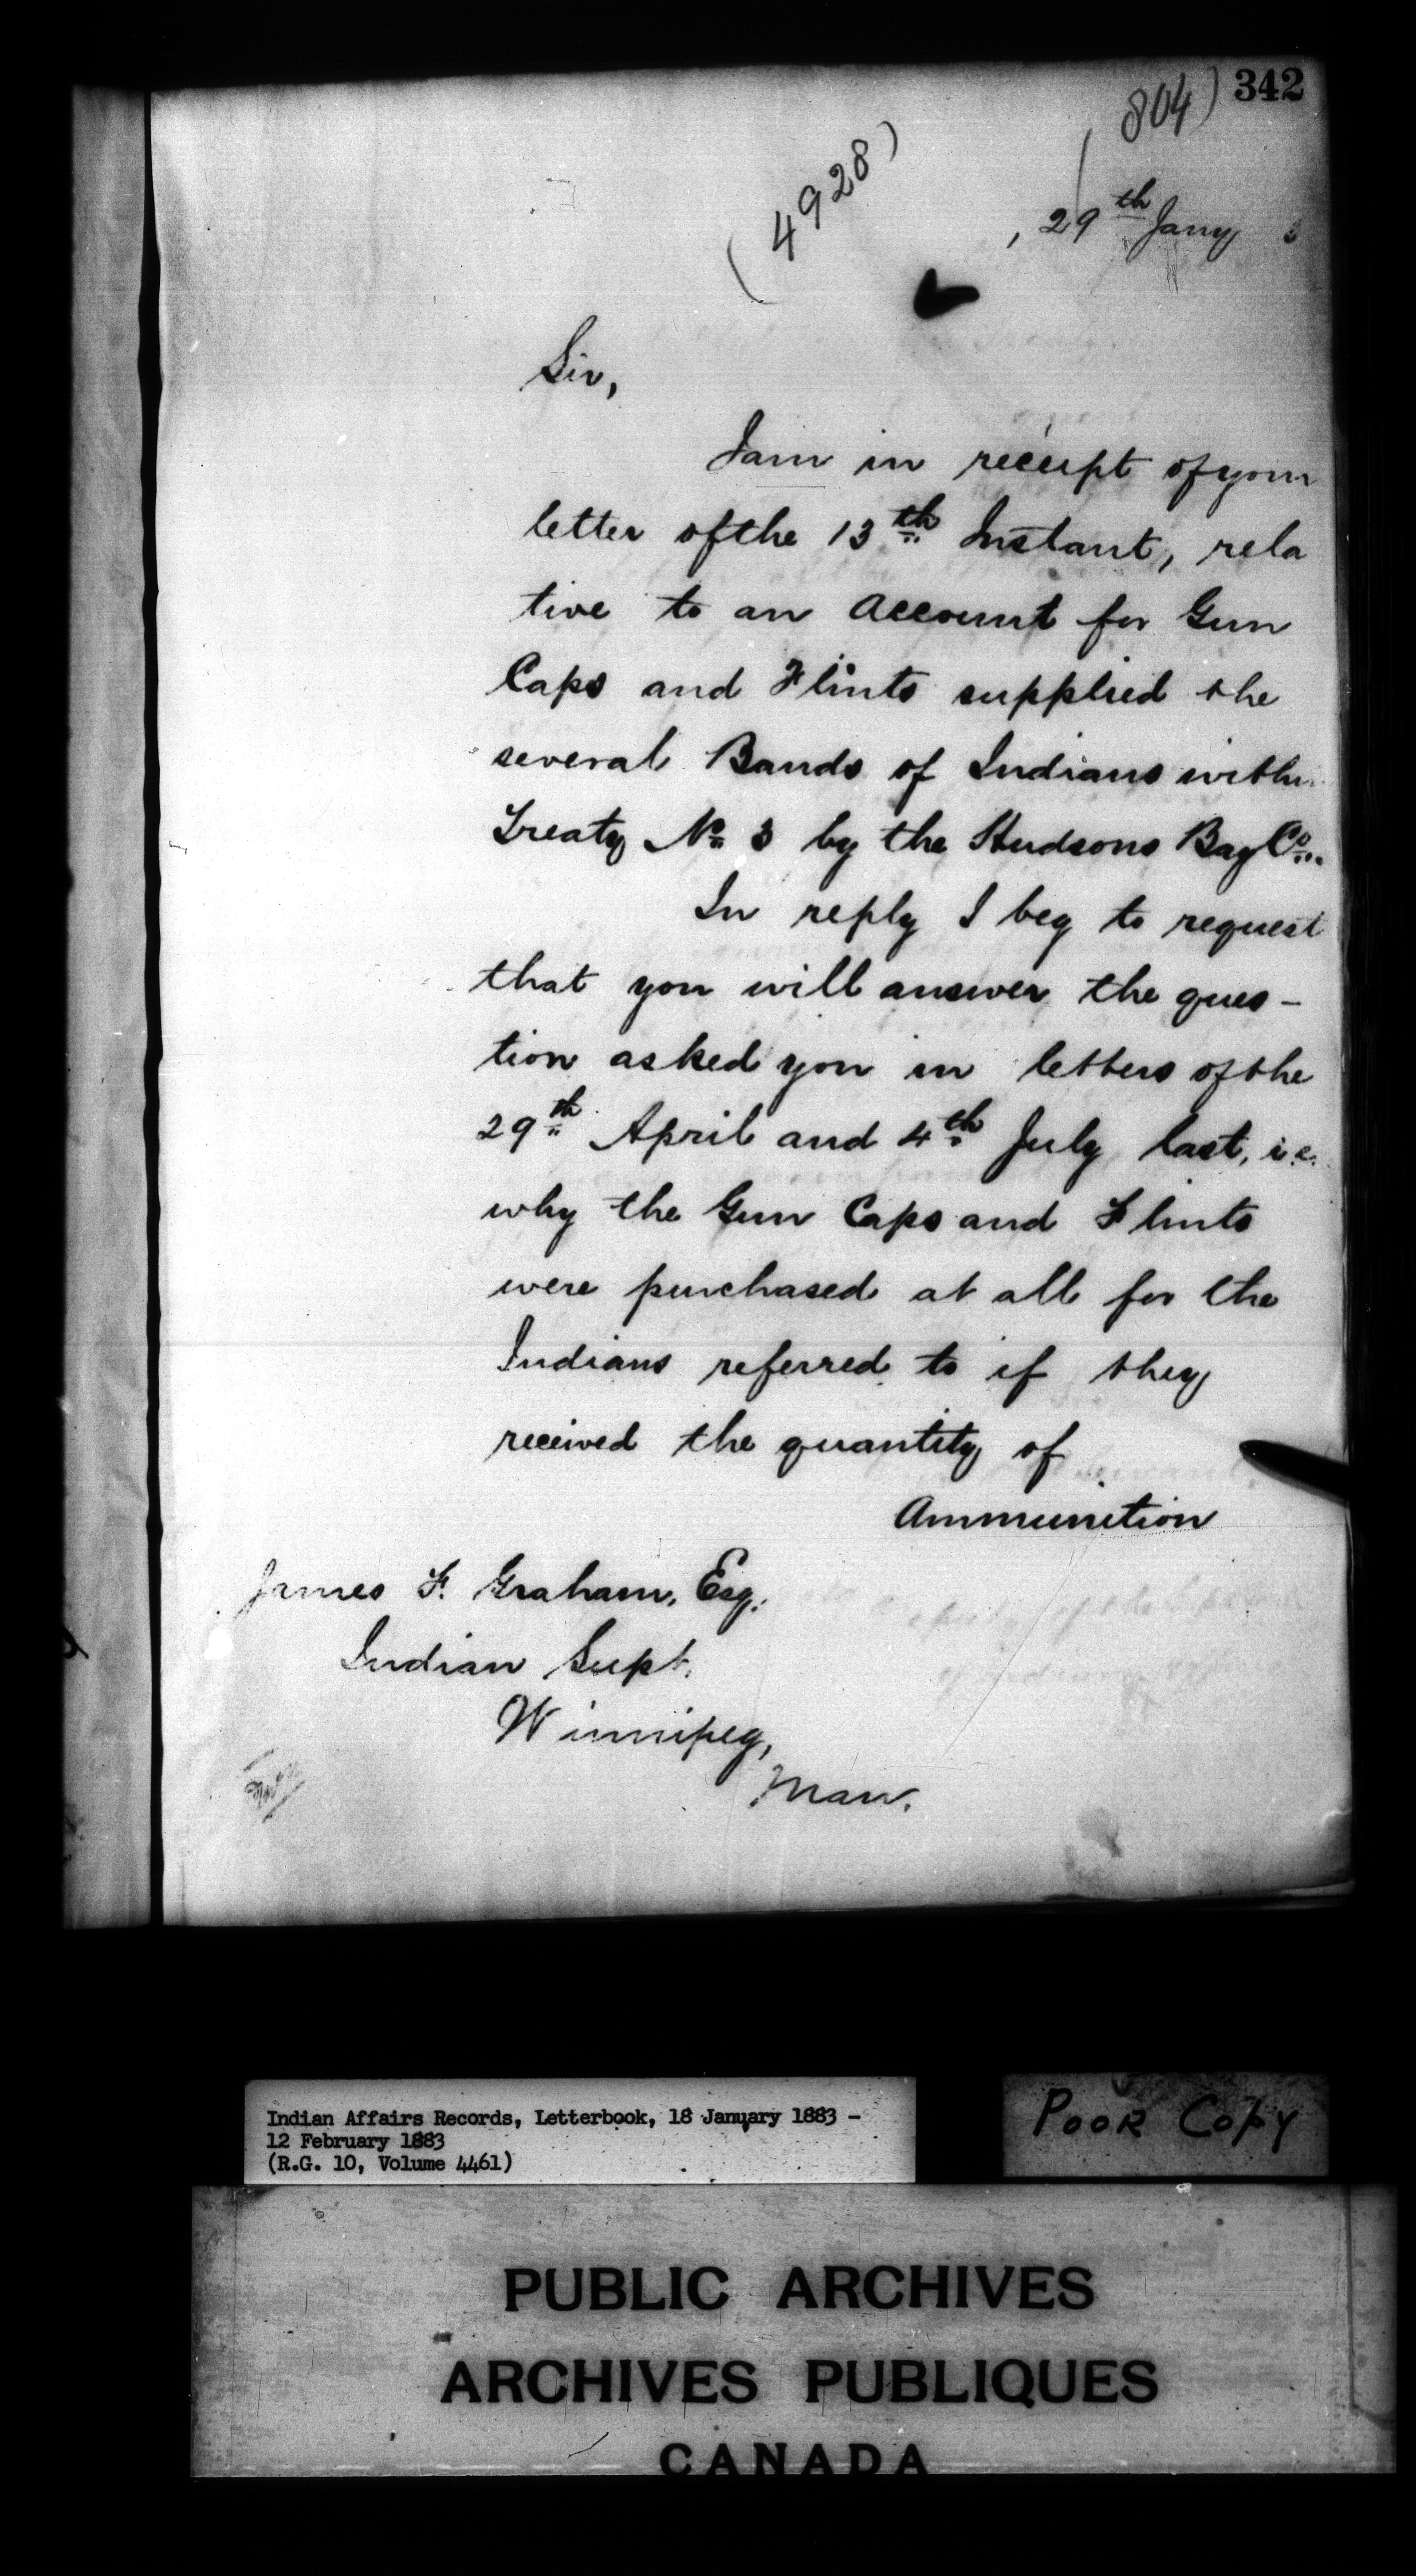 342
804)
(4928)
, 29th Jany 3
Sir,
I am in receipt of your
letter of the 13th Instant, rela
tive to an Account for Gun
Caps and Flints supplied the
several Bands of Indians within
Treaty No 3 by the Hudsons Bay Co.
In reply I beg to request
that you will answer the ques-
tion asked you in letters of the
29th April and 4th July last, i.e.
why the Gun Caps and Flints
were purchased at all for the
Indians referred to if they
received the quantity of
Ammunition
James F. Graham, Esq.
Indian Supt.
Winnipeg,
Man.
Indian Affairs Records, Letterbook, 18 January 1883 -
12 February 1883
(R.G. 10, Volume 4461)
POOR COPY
PUBLIC ARCHIVES
ARCHIVES PUBLIQUES
CANADA